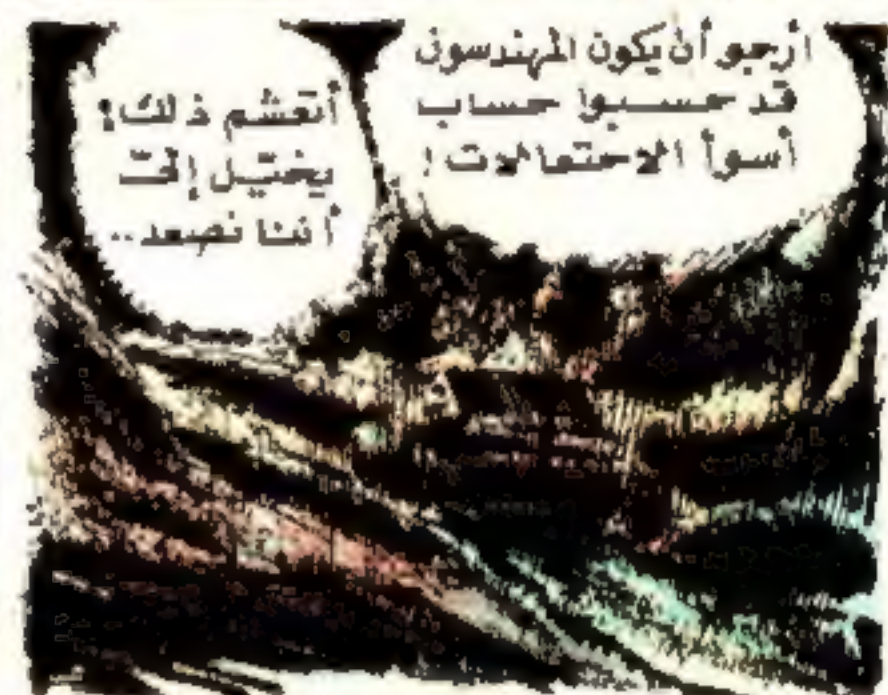 أرجو أن يكون المهندسون
قد حسبوا حساب
أسوأ الاحتمالات !
أتعشم ذلك!
يخيّل إليّ
أننا نصعد..